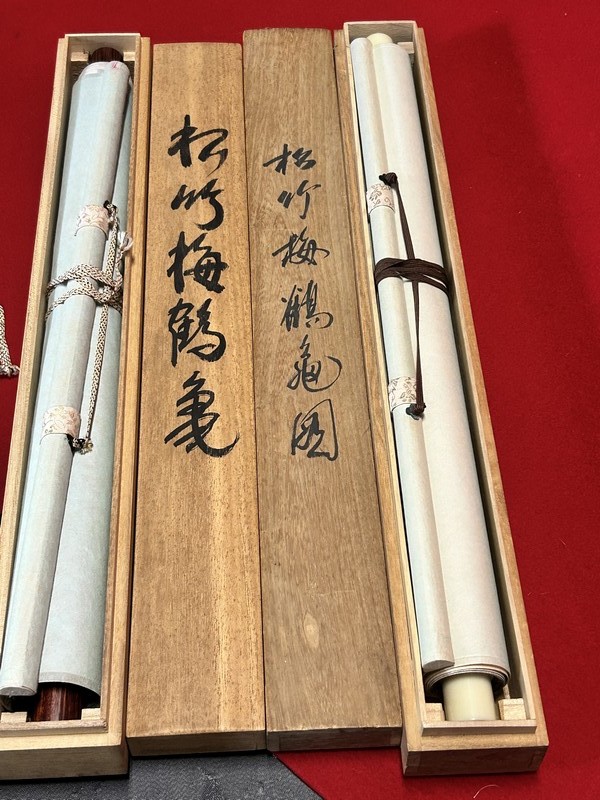 松竹梅鶴亀図
松竹梅鶴亀